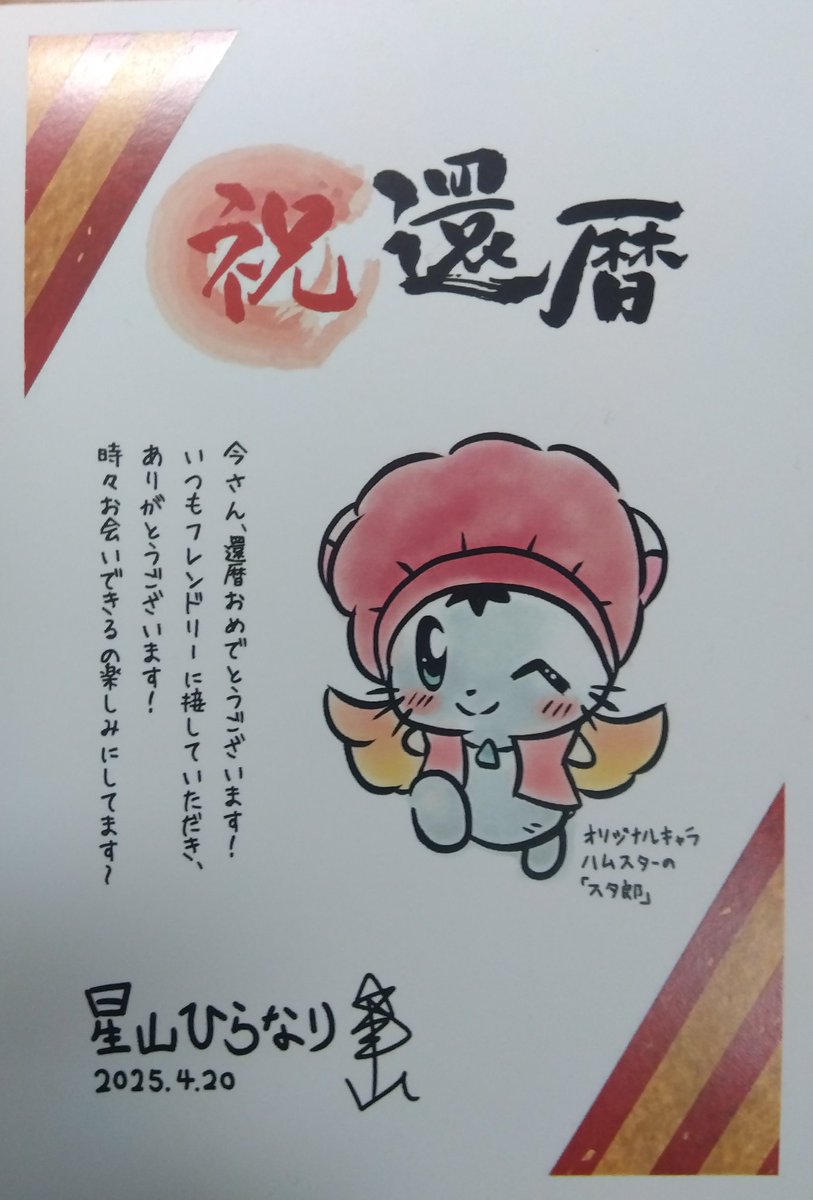 祝還暦
今さん、還暦おめでとうございます！
いつもフレンドリーに接していただき、
ありがとうございます！
時々お会いできるの楽しみにしてます〜
オリジナルキャラ
ハムスターの
「スタ郎」
星山ひらなり
2025.4.20